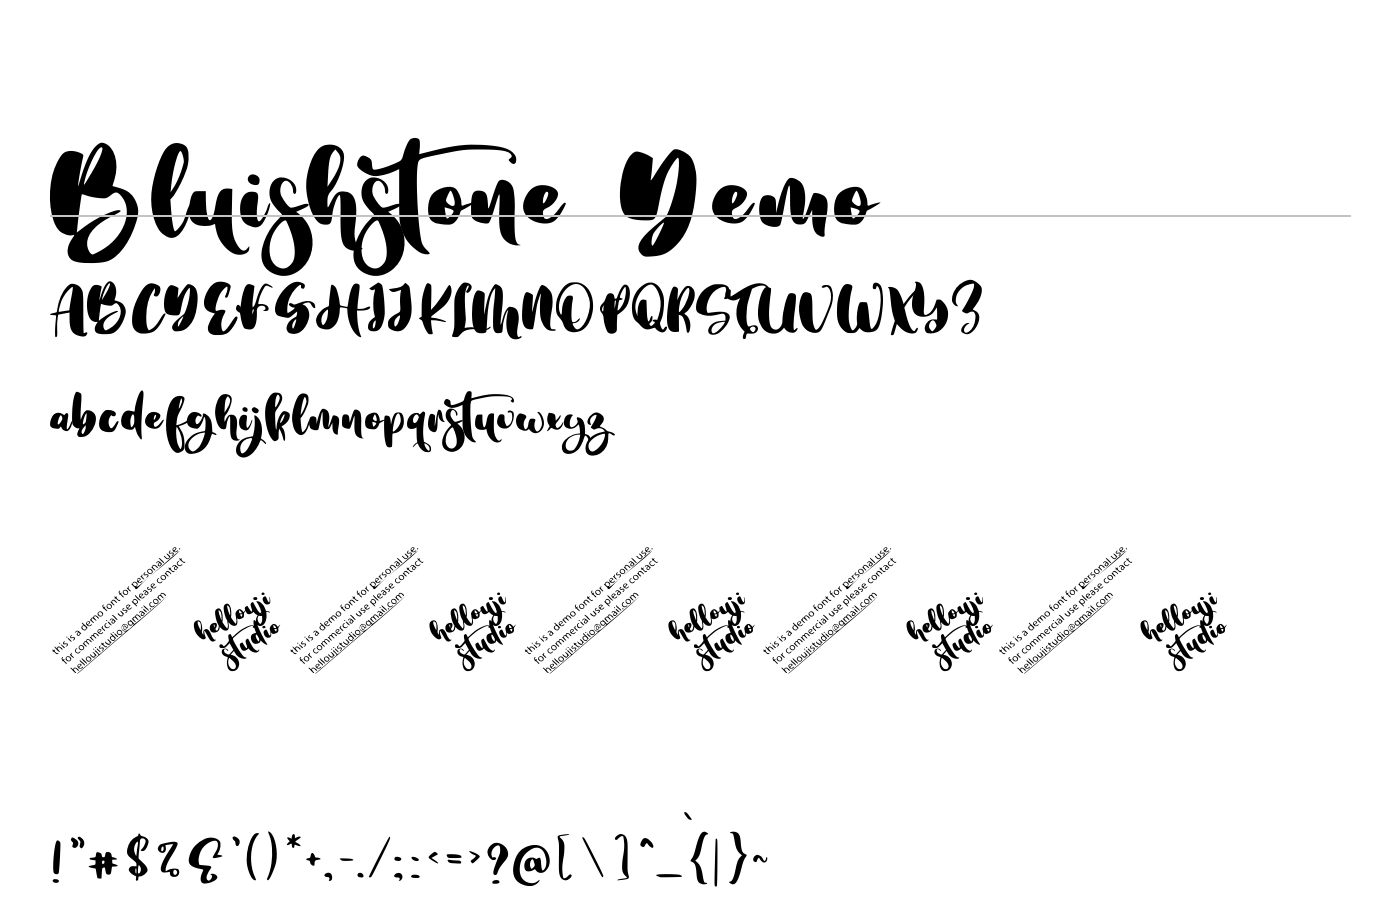 Bluishstone Demo
ABCDEFGHIJKLMNOPQRSTUVWXYZ
abcdefghijklmnopqrstuvwxyz
this is a demo font for personal use.
for commercial use please contact
helloujistudio@gmail.com
hellouji
studio
this is a demo font for personal use.
for commercial use please contact
helloujistudio@gmail.com
hellouji
studio
this is a demo font for personal use.
for commercial use please contact
helloujistudio@gmail.com
hellouji
studio
this is a demo font for personal use.
for commercial use please contact
helloujistudio@gmail.com
hellouji
studio
this is a demo font for personal use.
for commercial use please contact
helloujistudio@gmail.com
hellouji
studio
!"#$%&'()*+,-./:;<=>?@[\]^_`{|}~